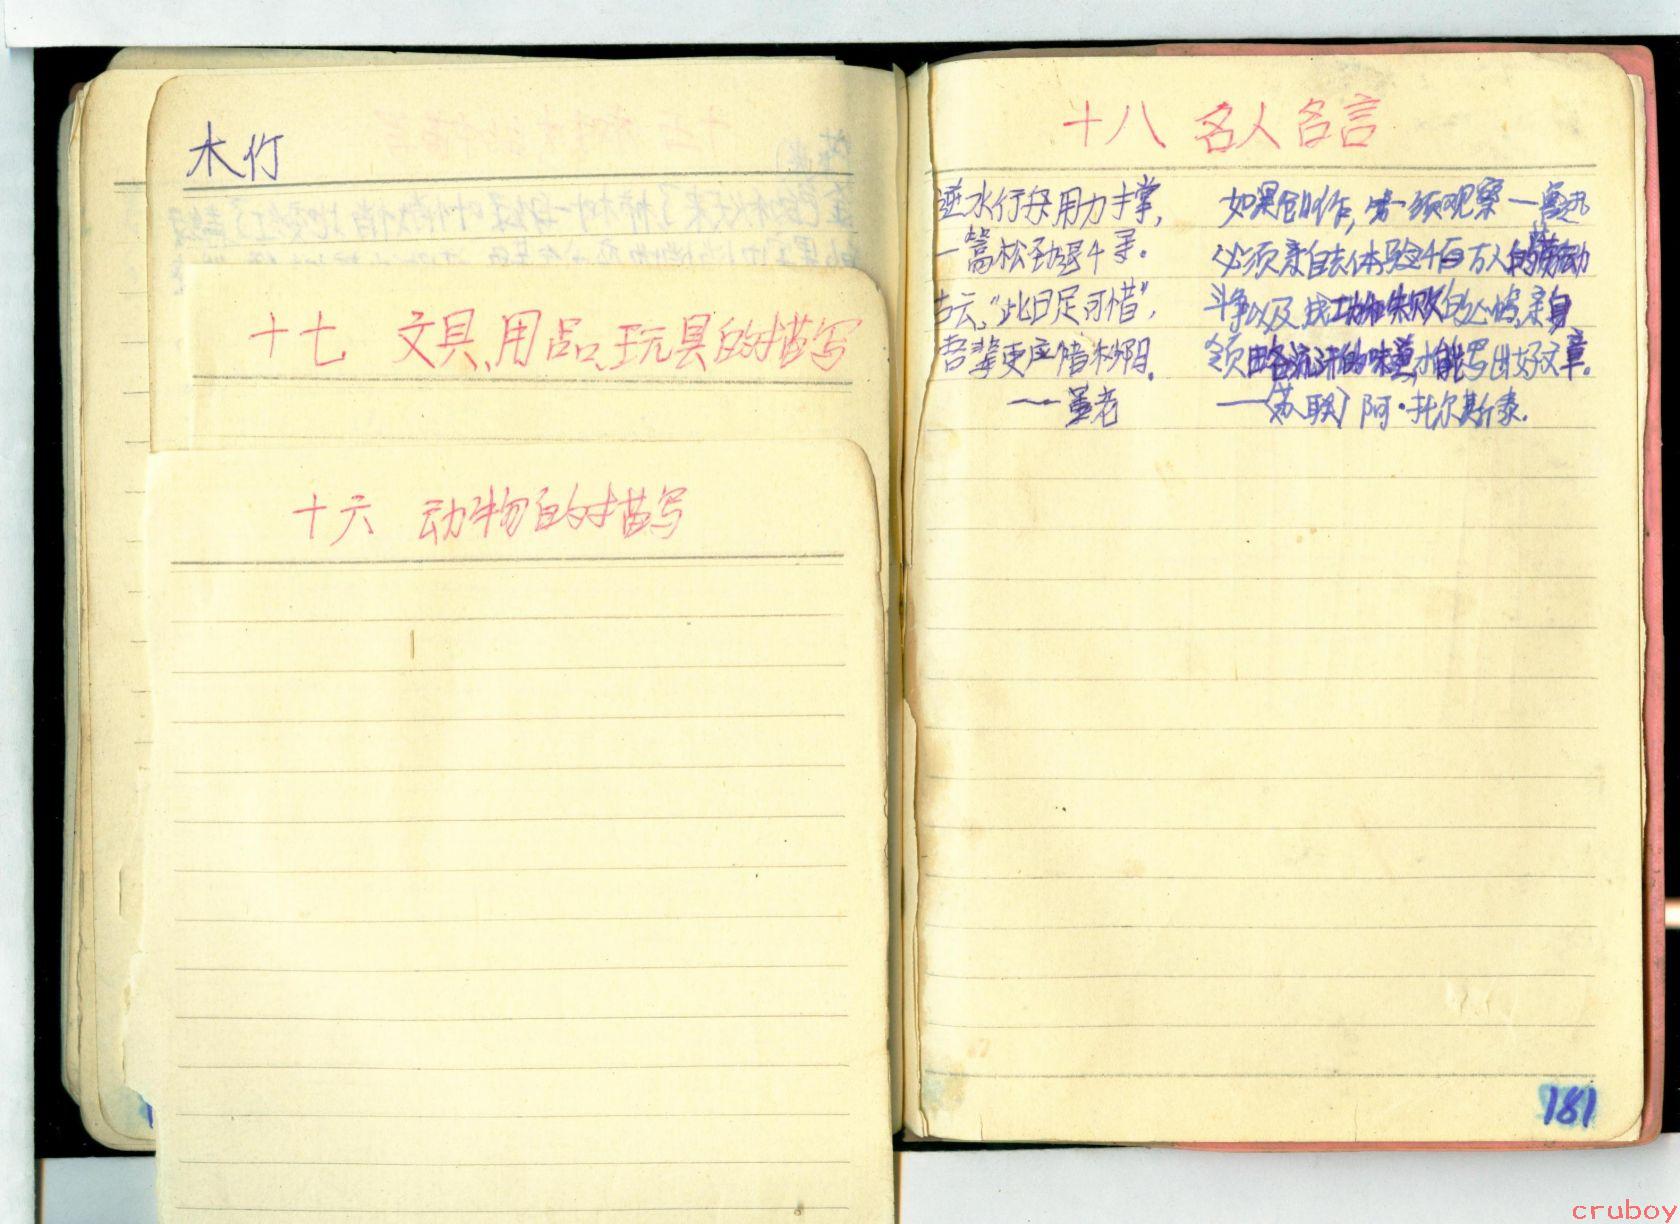 木竹
十七 文具、用品、玩具的描写
十六 动物的描写
十八 名人名言
逆水行舟用力撑,
一篙松劲退千寻。
古云,“此日足可惜”,
吾辈更应惜秒阴。
——董老
如果创作,第一须观察——鲁迅
必须亲自去体验千百万人的劳动
斗争以及成功和失败的心情,亲身
领略流汗的味道,才能写出好文章。
——〔苏联〕阿·托尔斯泰.
181
cruboy